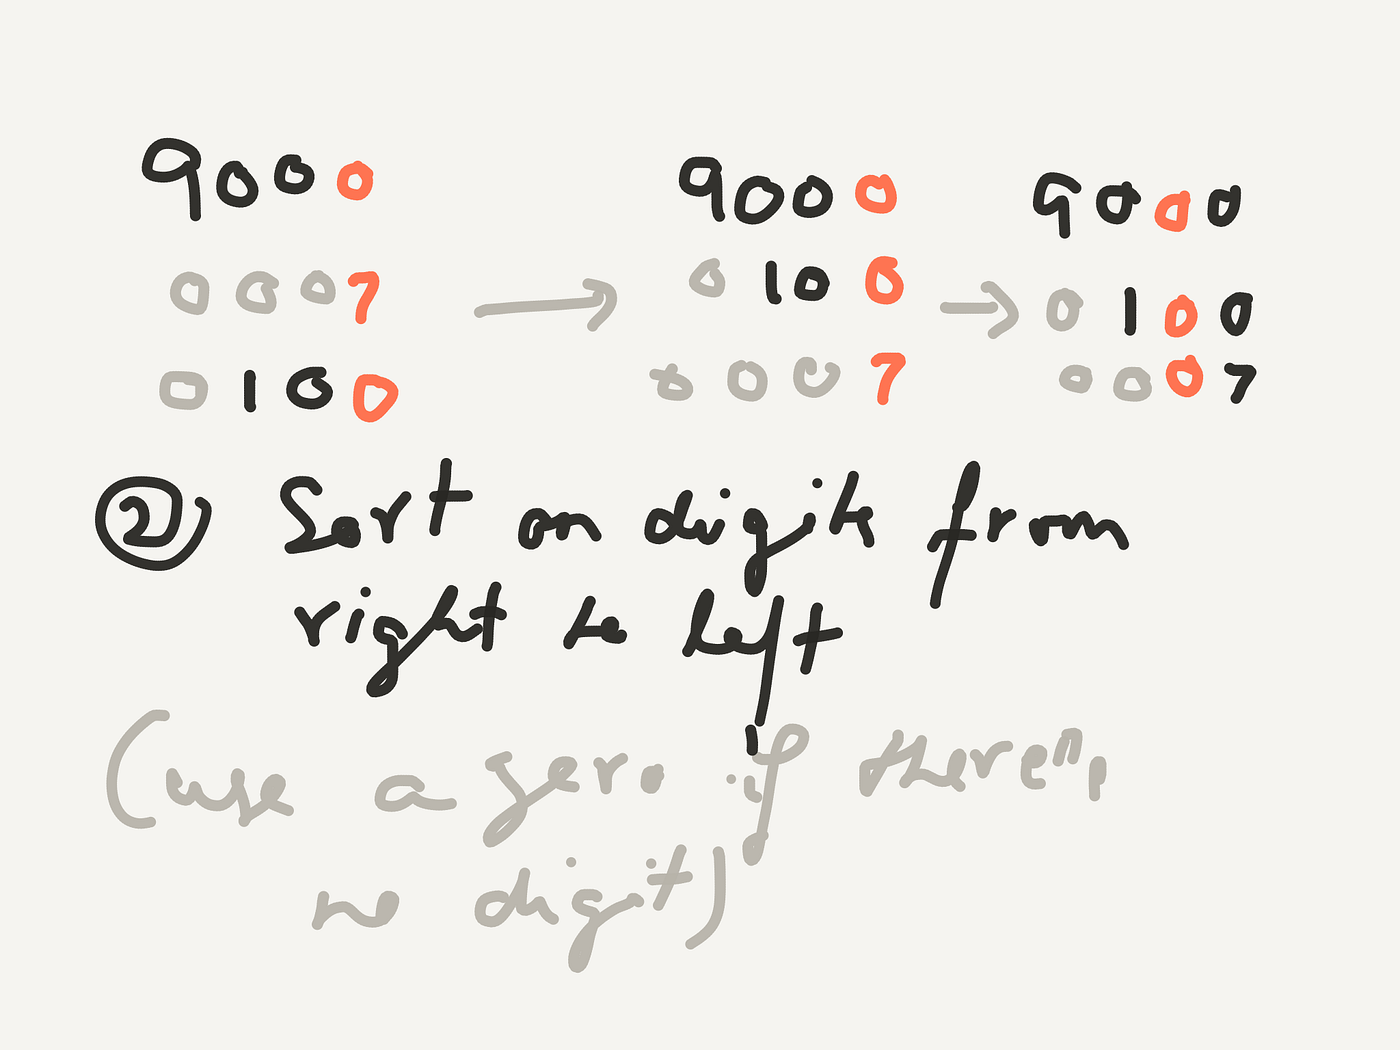 9000 → 9000 → 9000
0007 0100 0100
0100 0007 0007
② Sort on digits from
right to left
(use a zero if there's
no digit)